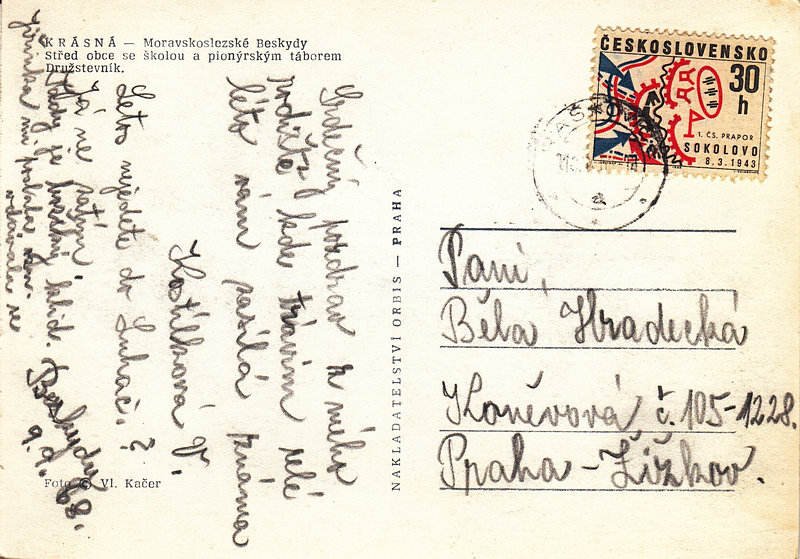 KRÁSNÁ — Moravskoslezské Beskydy
Střed obce se školou a pionýrským táborem
Družstevník.
Srdečný pozdrav z mého
rodiště kde trávím celé
léto vám zasílá známa
Kostílková
Letos nejedete do Luhač. ?
Já ne zatým
všady je klid.
Jiřinka mi psala
vdávala se
Beskydy
9.9. 68.
Foto © Vl. Kačer
NAKLADATELSTVÍ ORBIS — PRAHA
ČESKOSLOVENSKO
30
h
1. ČS. PRAPOR
SOKOLOVO
8.3.1943
Paní,
Běla Hradecká
Koněvová č. 105-1228.
Praha - Žižkov.